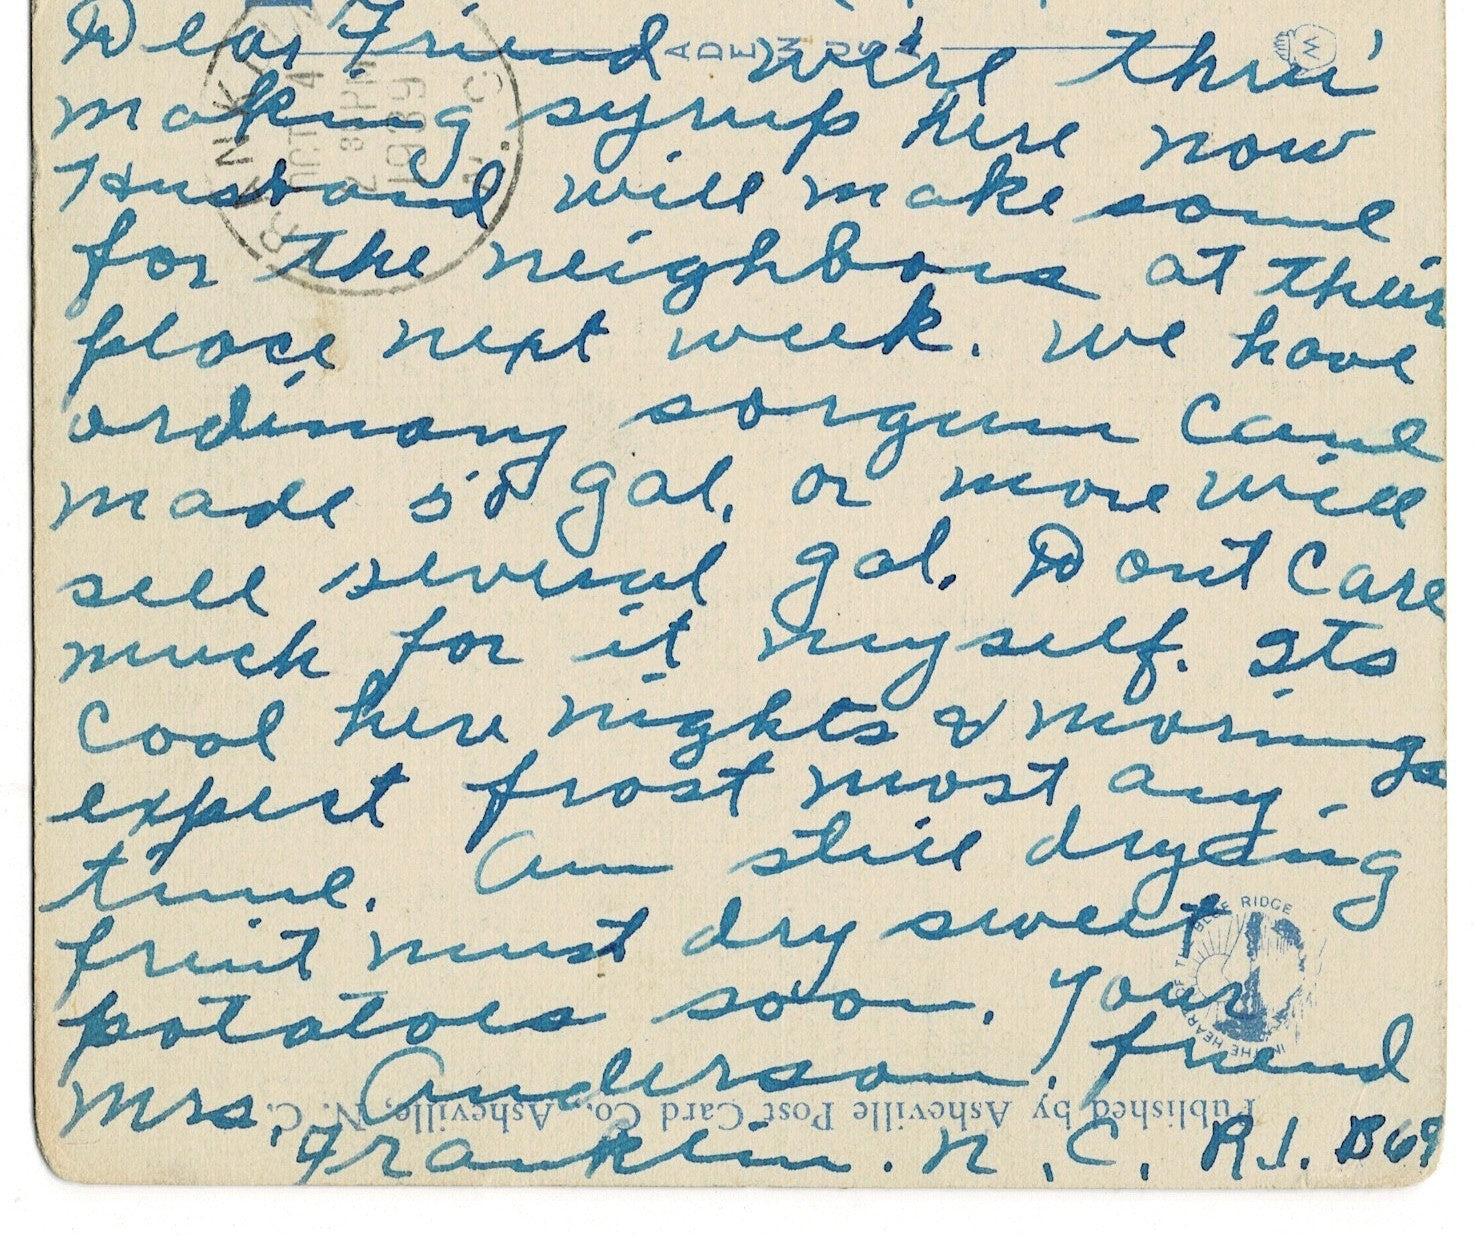 Dear Friend we're thru'
making syrup here now
Husband will make some
for the neighbors at their
place next week. We have
ordinary sorgum cane
made 50 gal. or more will
sell several gal. Dont care
much for it myself. Its
cool here nights & mornings
expect frost most any
time. Am still drying
fruit must dry sweet
potatoes soon. Your friend
Mrs. Anderson,
Franklin. N.C. R.1. B69
MADE IN USA
OCT 4
2 30 PM
1939
N.C.
IN THE HEART OF THE BLUE RIDGE
Published by Asheville Post Card Co., Asheville, N. C.